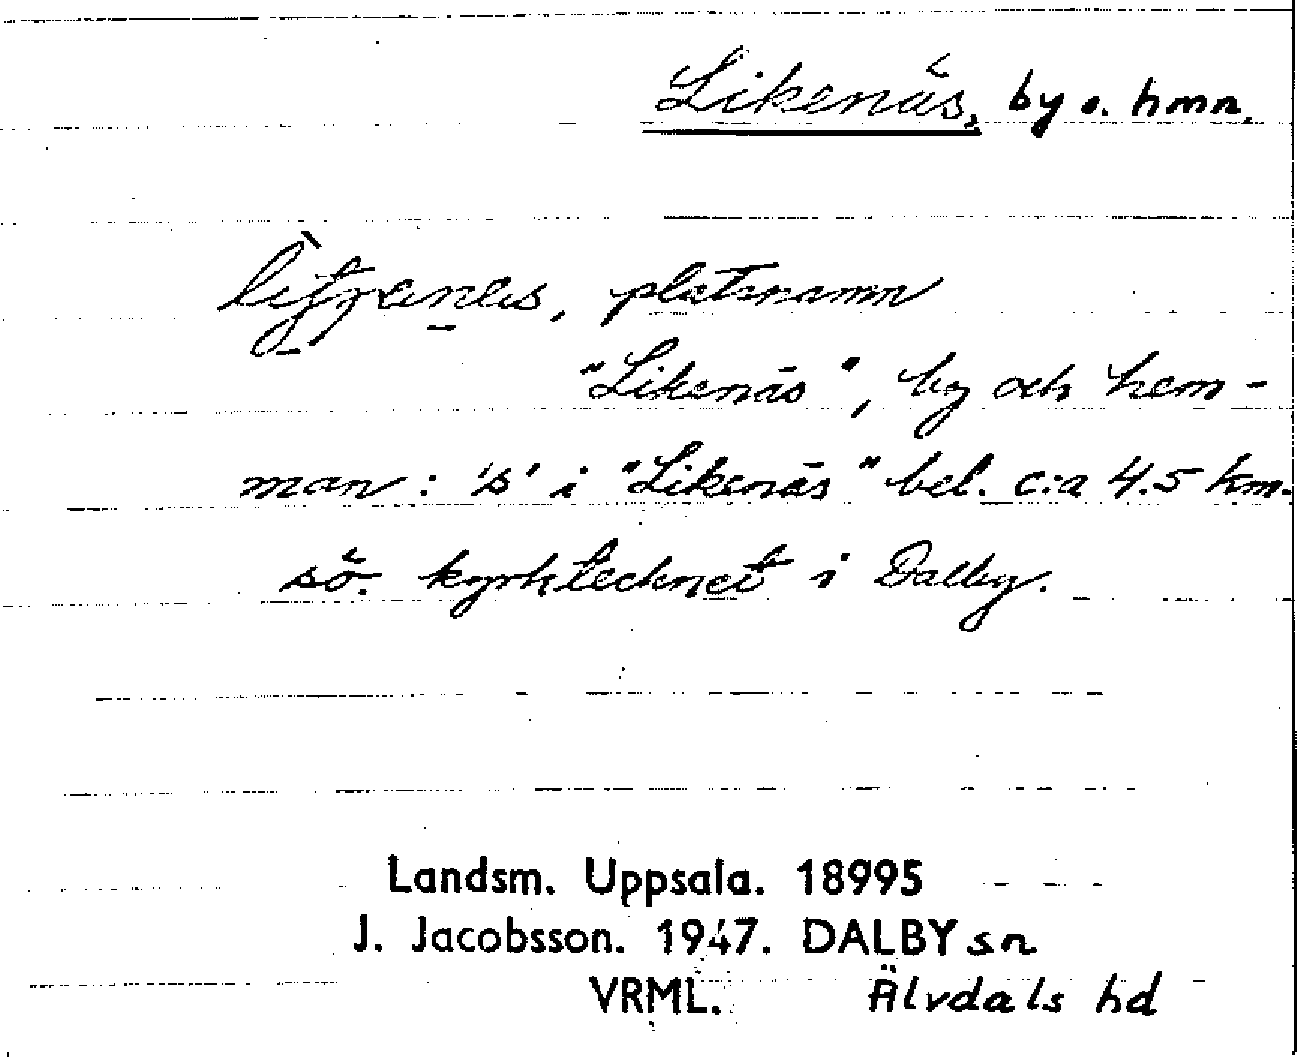 Likenäs, by o. hmn.
platsnamn
"Likenäs", by och hem-
man: 's' i "Likenäs" bel. c:a 4.5 km.
sö. kyrktecknet i Dalby.
Landsm. Uppsala. 18995
J. Jacobsson. 1947. DALBY sn
VRML. Älvdals hd